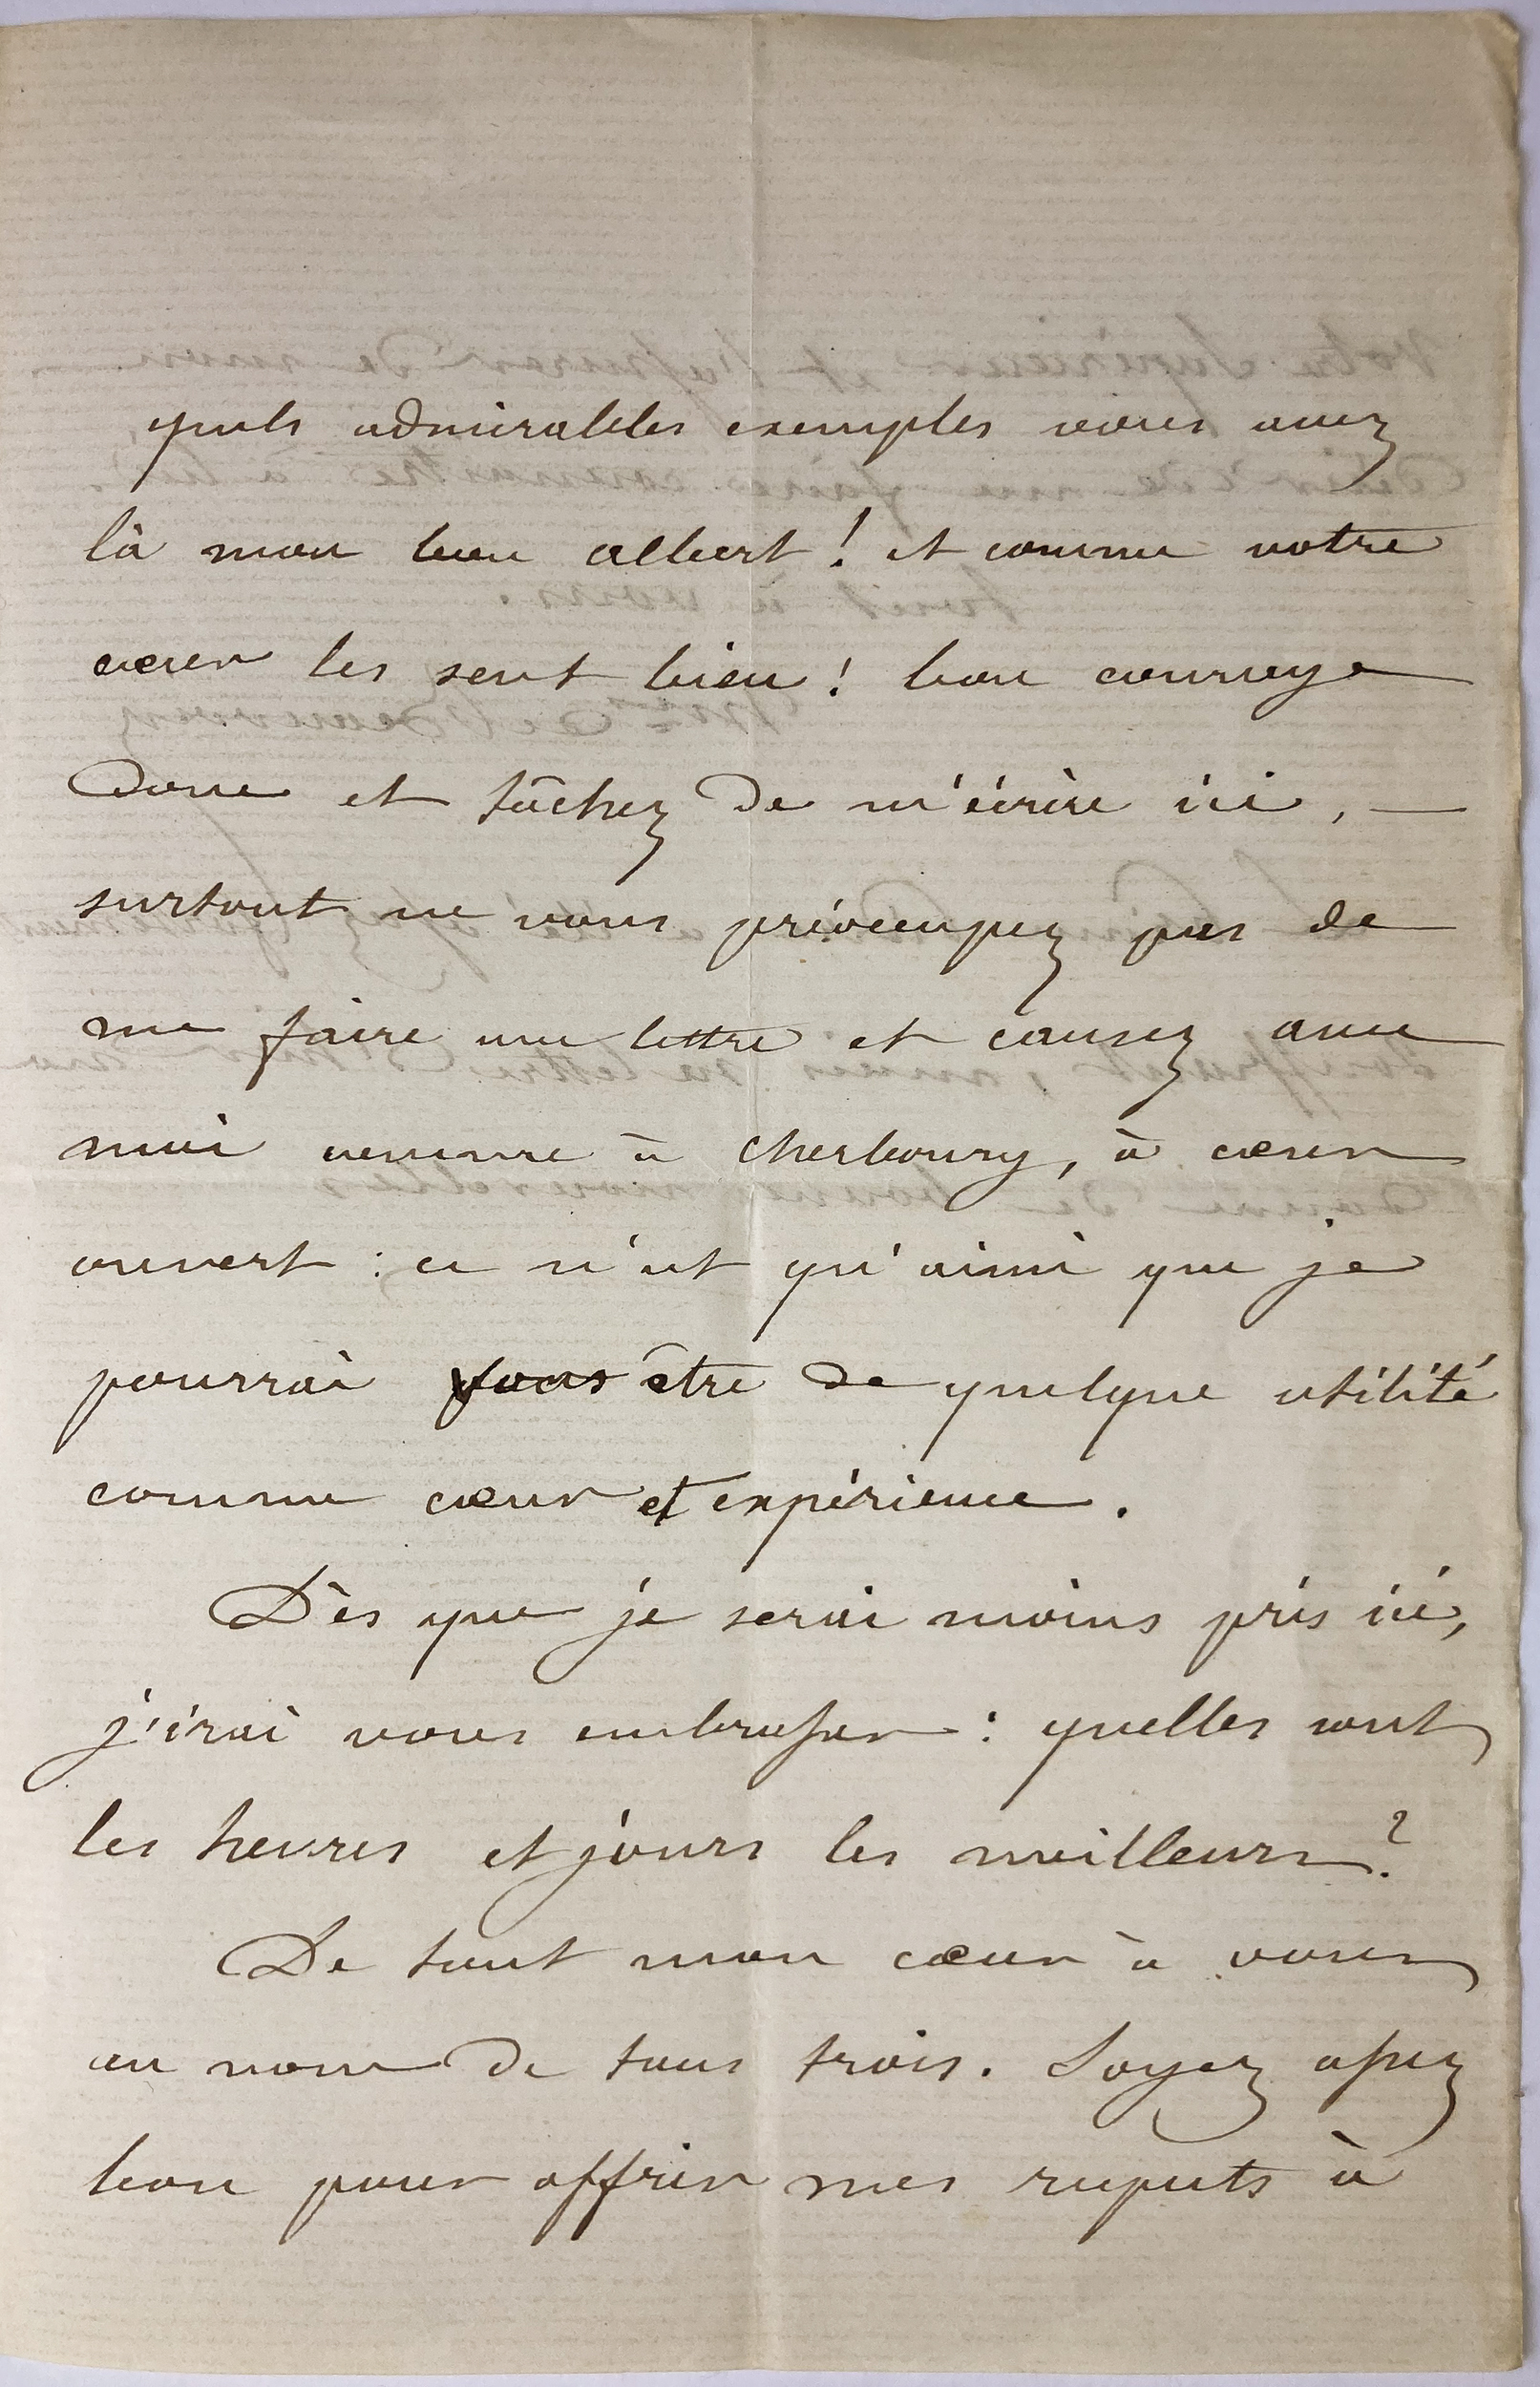 quels admirables exemples vous avez
là mon bon albert ! et comme votre
cœur les sent bien ! bon courage
Donc et tâchez de m'écrire ici, —
surtout ne vous préoccupez pas de
me faire une lettre et causez avec
moi comme à Cherbourg, à cœur
ouvert : ce n'est qu'ainsi que je
pourrai vous être de quelque utilité
comme cœur et expérience.
Dès que je serai moins pris ici,
j'irai vous embrasser : quelles sont
les heures et jours les meilleurs ?
De tout mon cœur à vous
au nom de tous trois. Soyez assez
bon pour offrir mes respects à